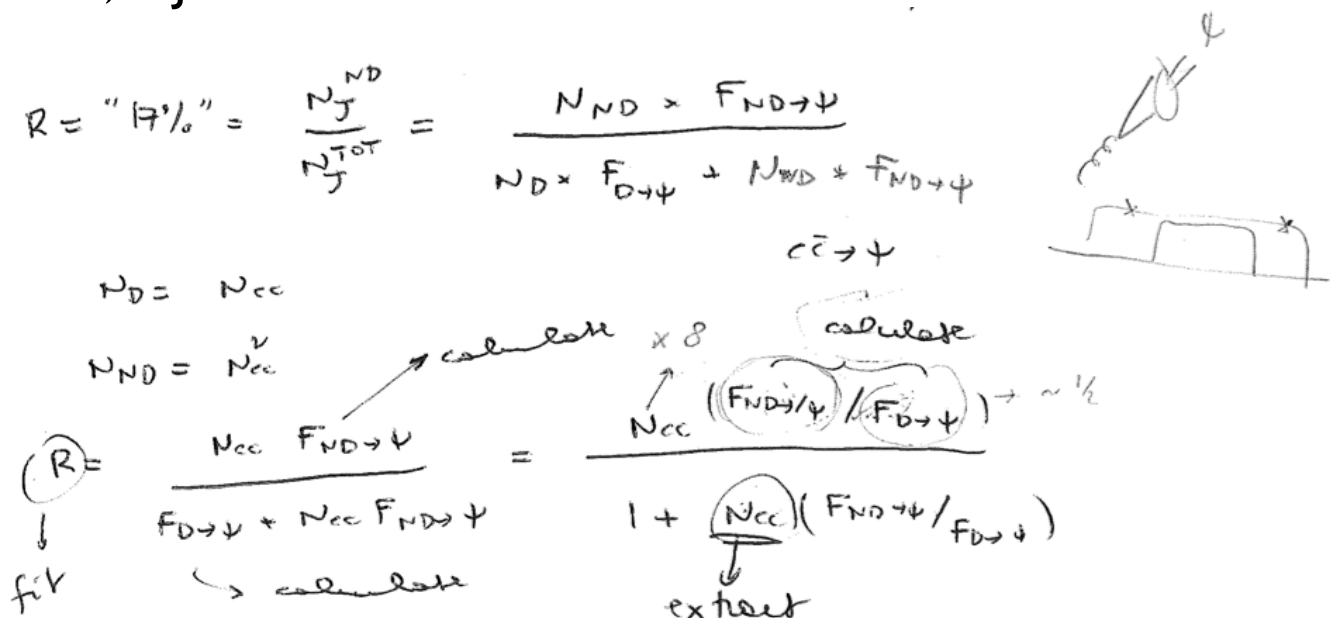 R = "17%" = N_J^ND / N_J^TOT = N_ND × F_ND→ψ / N_D × F_D→ψ + N_ND * F_ND→ψ
ψ
c c̄ → ψ
N_D = N_cc
N_ND = N_cc^2
calculate
× 8
calculate
R = N_cc F_ND→ψ / F_D→ψ + N_cc F_ND→ψ = N_cc (F_ND→ψ / F_D→ψ) / 1 + N_cc (F_ND→ψ / F_D→ψ)
→ ~ 1/2
fit
calculate
extract